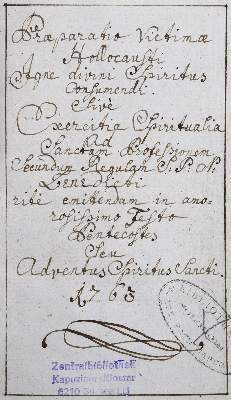 Præparatio Victimæ
Hollocausti
Igne divini Spiritus
Consumendi.
Sivè
Exercitia Spiritualia
Ad
Sanctam Professionem
Secundum Regulam S. P. N.
Benedicti
ritè emitendam in amo-
rosissimo Festo
Pentecostes
Seu
Adventus Spiritus Sancti.
1763
Zentralbibliothek
Kapuziner-Kloster